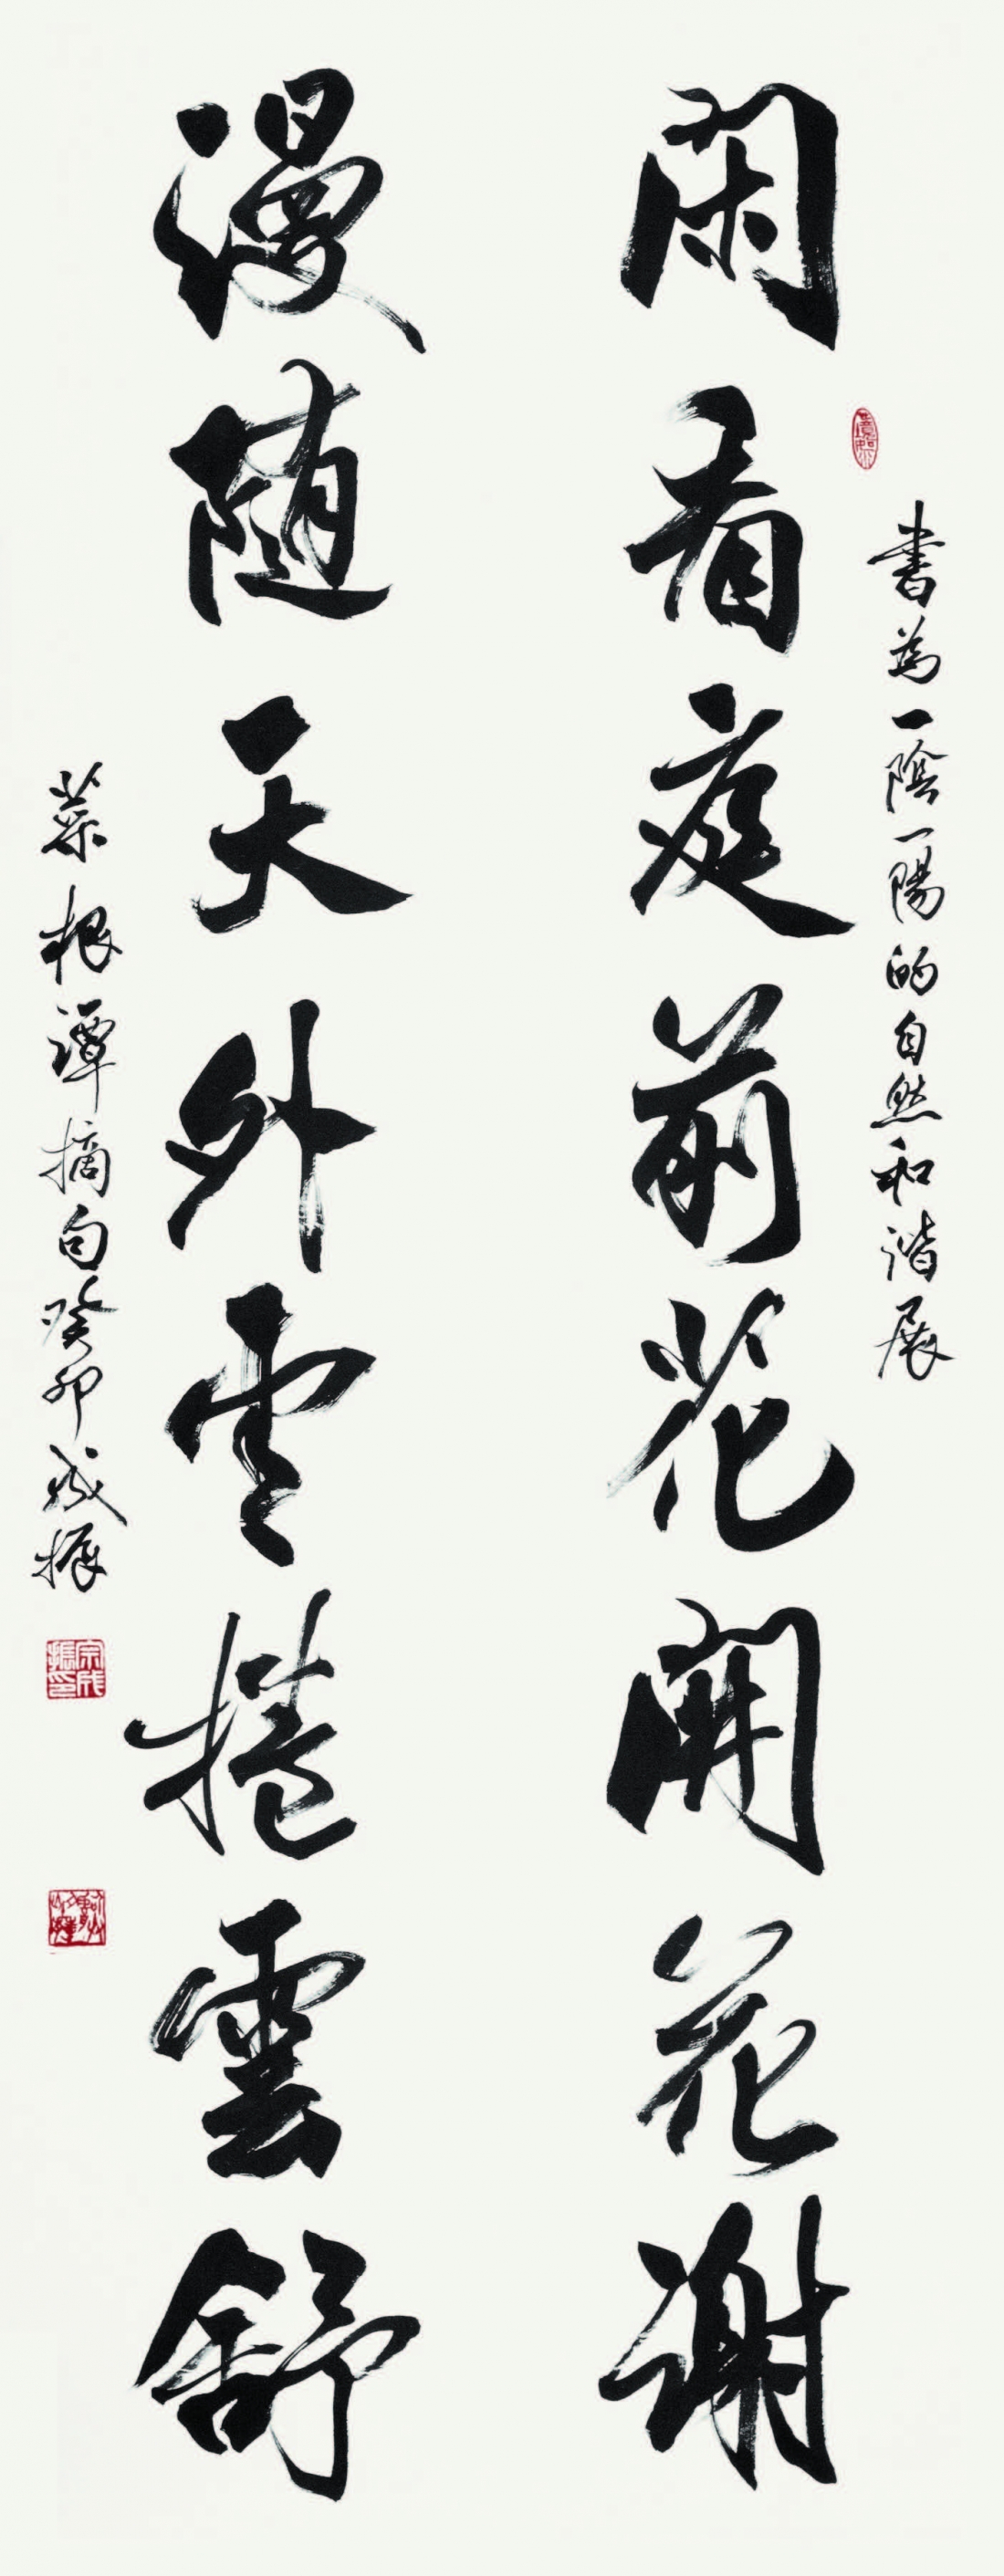 書為一陰一陽的自然和諧展
閑看庭前花開花謝
漫随天外雲捲雲舒
菜根譚摘句癸卯成振
宗成振印